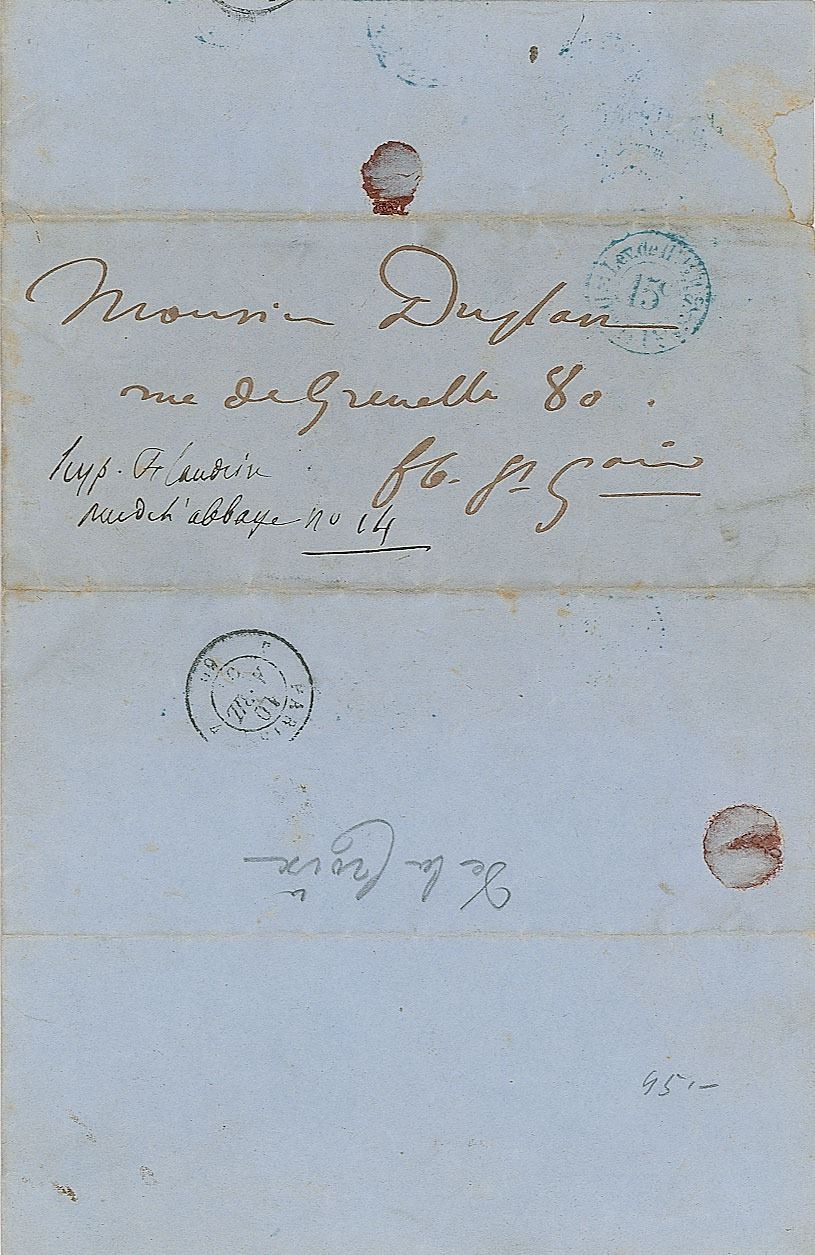 15
Monsieur Duplan
rue de Grenelle 80.
fb. St G ain
hyp. Flandrin
rue de l'abbaye no 14
PARIS
De la Croix
95.-